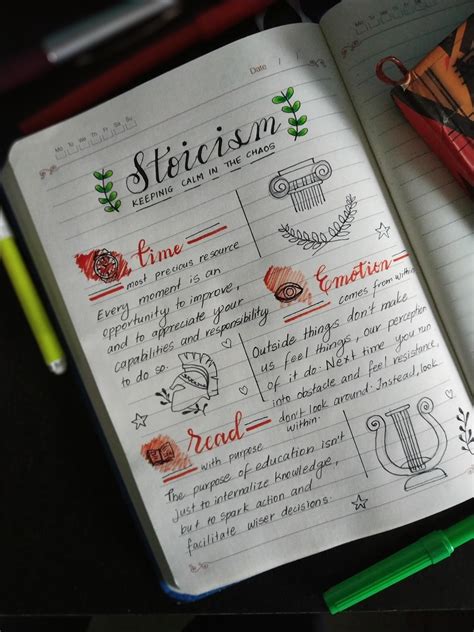 Date
Mo Tu We Th Fr Sa Su
Stoicism
KEEPING CALM IN THE CHAOS
time
most precious resource
Every moment is an
opportunity to improve,
and to appreciate your
capabilities and responsibility
to do so.
Emotion
comes from within
Outside things don't make
us feel things, our perception
of it do. Next time you run
into obstacle and feel resistance,
don't look around. Instead, look
within.
read
with purpose
The purpose of education isn't
just to internalize knowledge,
but to spark action and
facilitate wiser decisions.